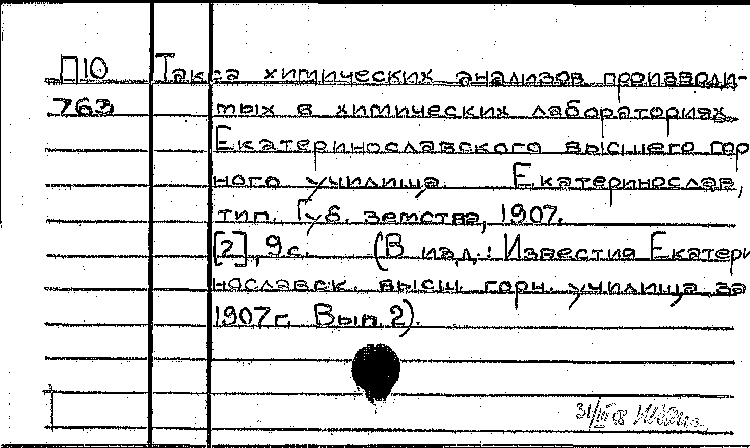 П10 Такса химических анализов производи-
763 мых в химических лабораториях
Екатеринославского высшего гор
ного училища. Екатеринослав,
тип. Губ. земства, 1907.
[2], 9с. (В изд.: Известия Екатери
нославск. высш. горн. училища за
1907г. Вып. 2).